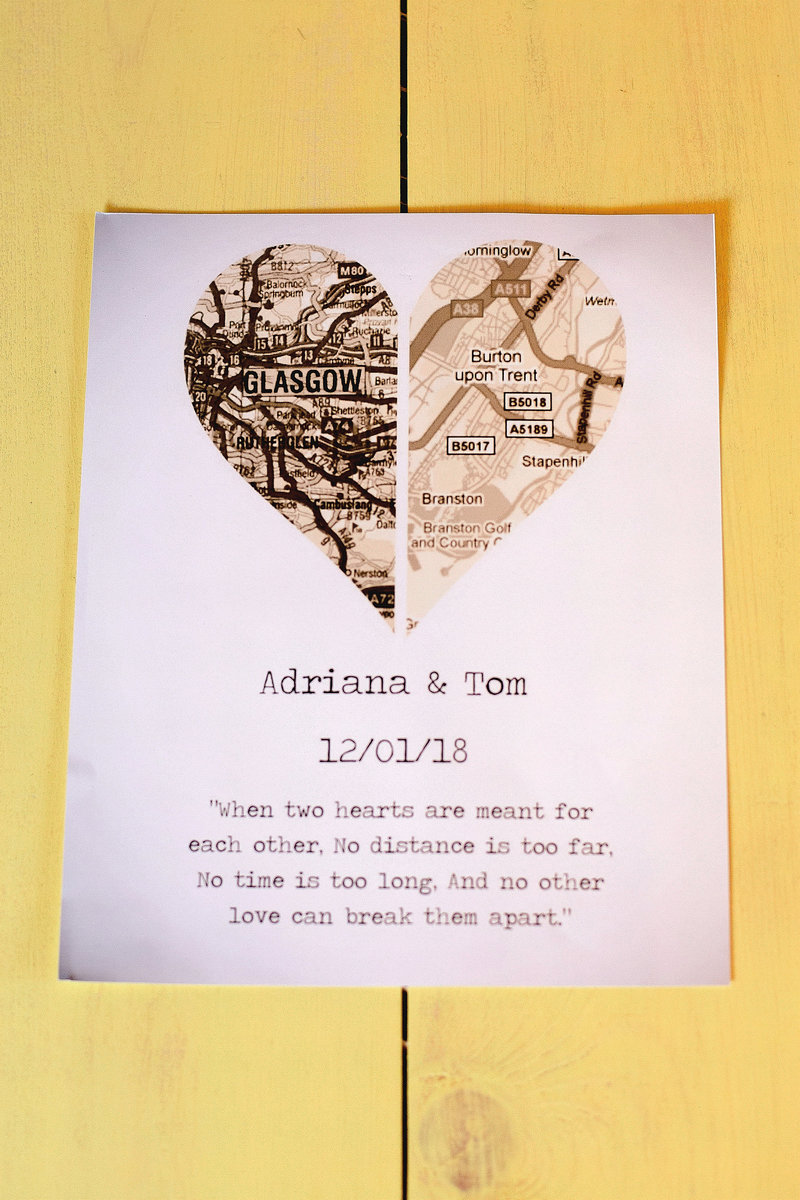 B812
M80
Balornock
Springburn
Stepps
Port
15
14
13
12
11
16
A8
GLASGOW
20
A89
Shettleston
RUTHERGLEN
Cambuslang
A749
Nerston
A72
orninglow
A511
A38
Derby Rd
Wetm
Burton
upon Trent
B5018
A5189
Stapenhill Rd
B5017
Stapenhil
Branston
Branston Golf
and Country C
Adriana & Tom
12/01/18
"When two hearts are meant for
each other, No distance is too far,
No time is too long, And no other
love can break them apart."